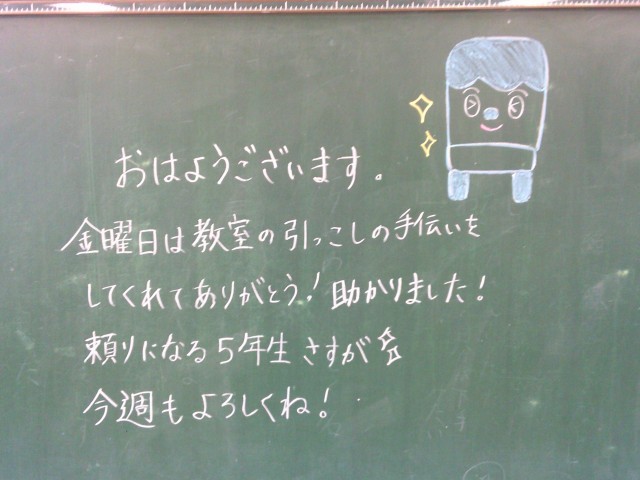 おはようございます。
金曜日は教室の引っこしの手伝いを
してくれてありがとう!助かりました!
頼りになる5年生さすが
今週もよろしくね!